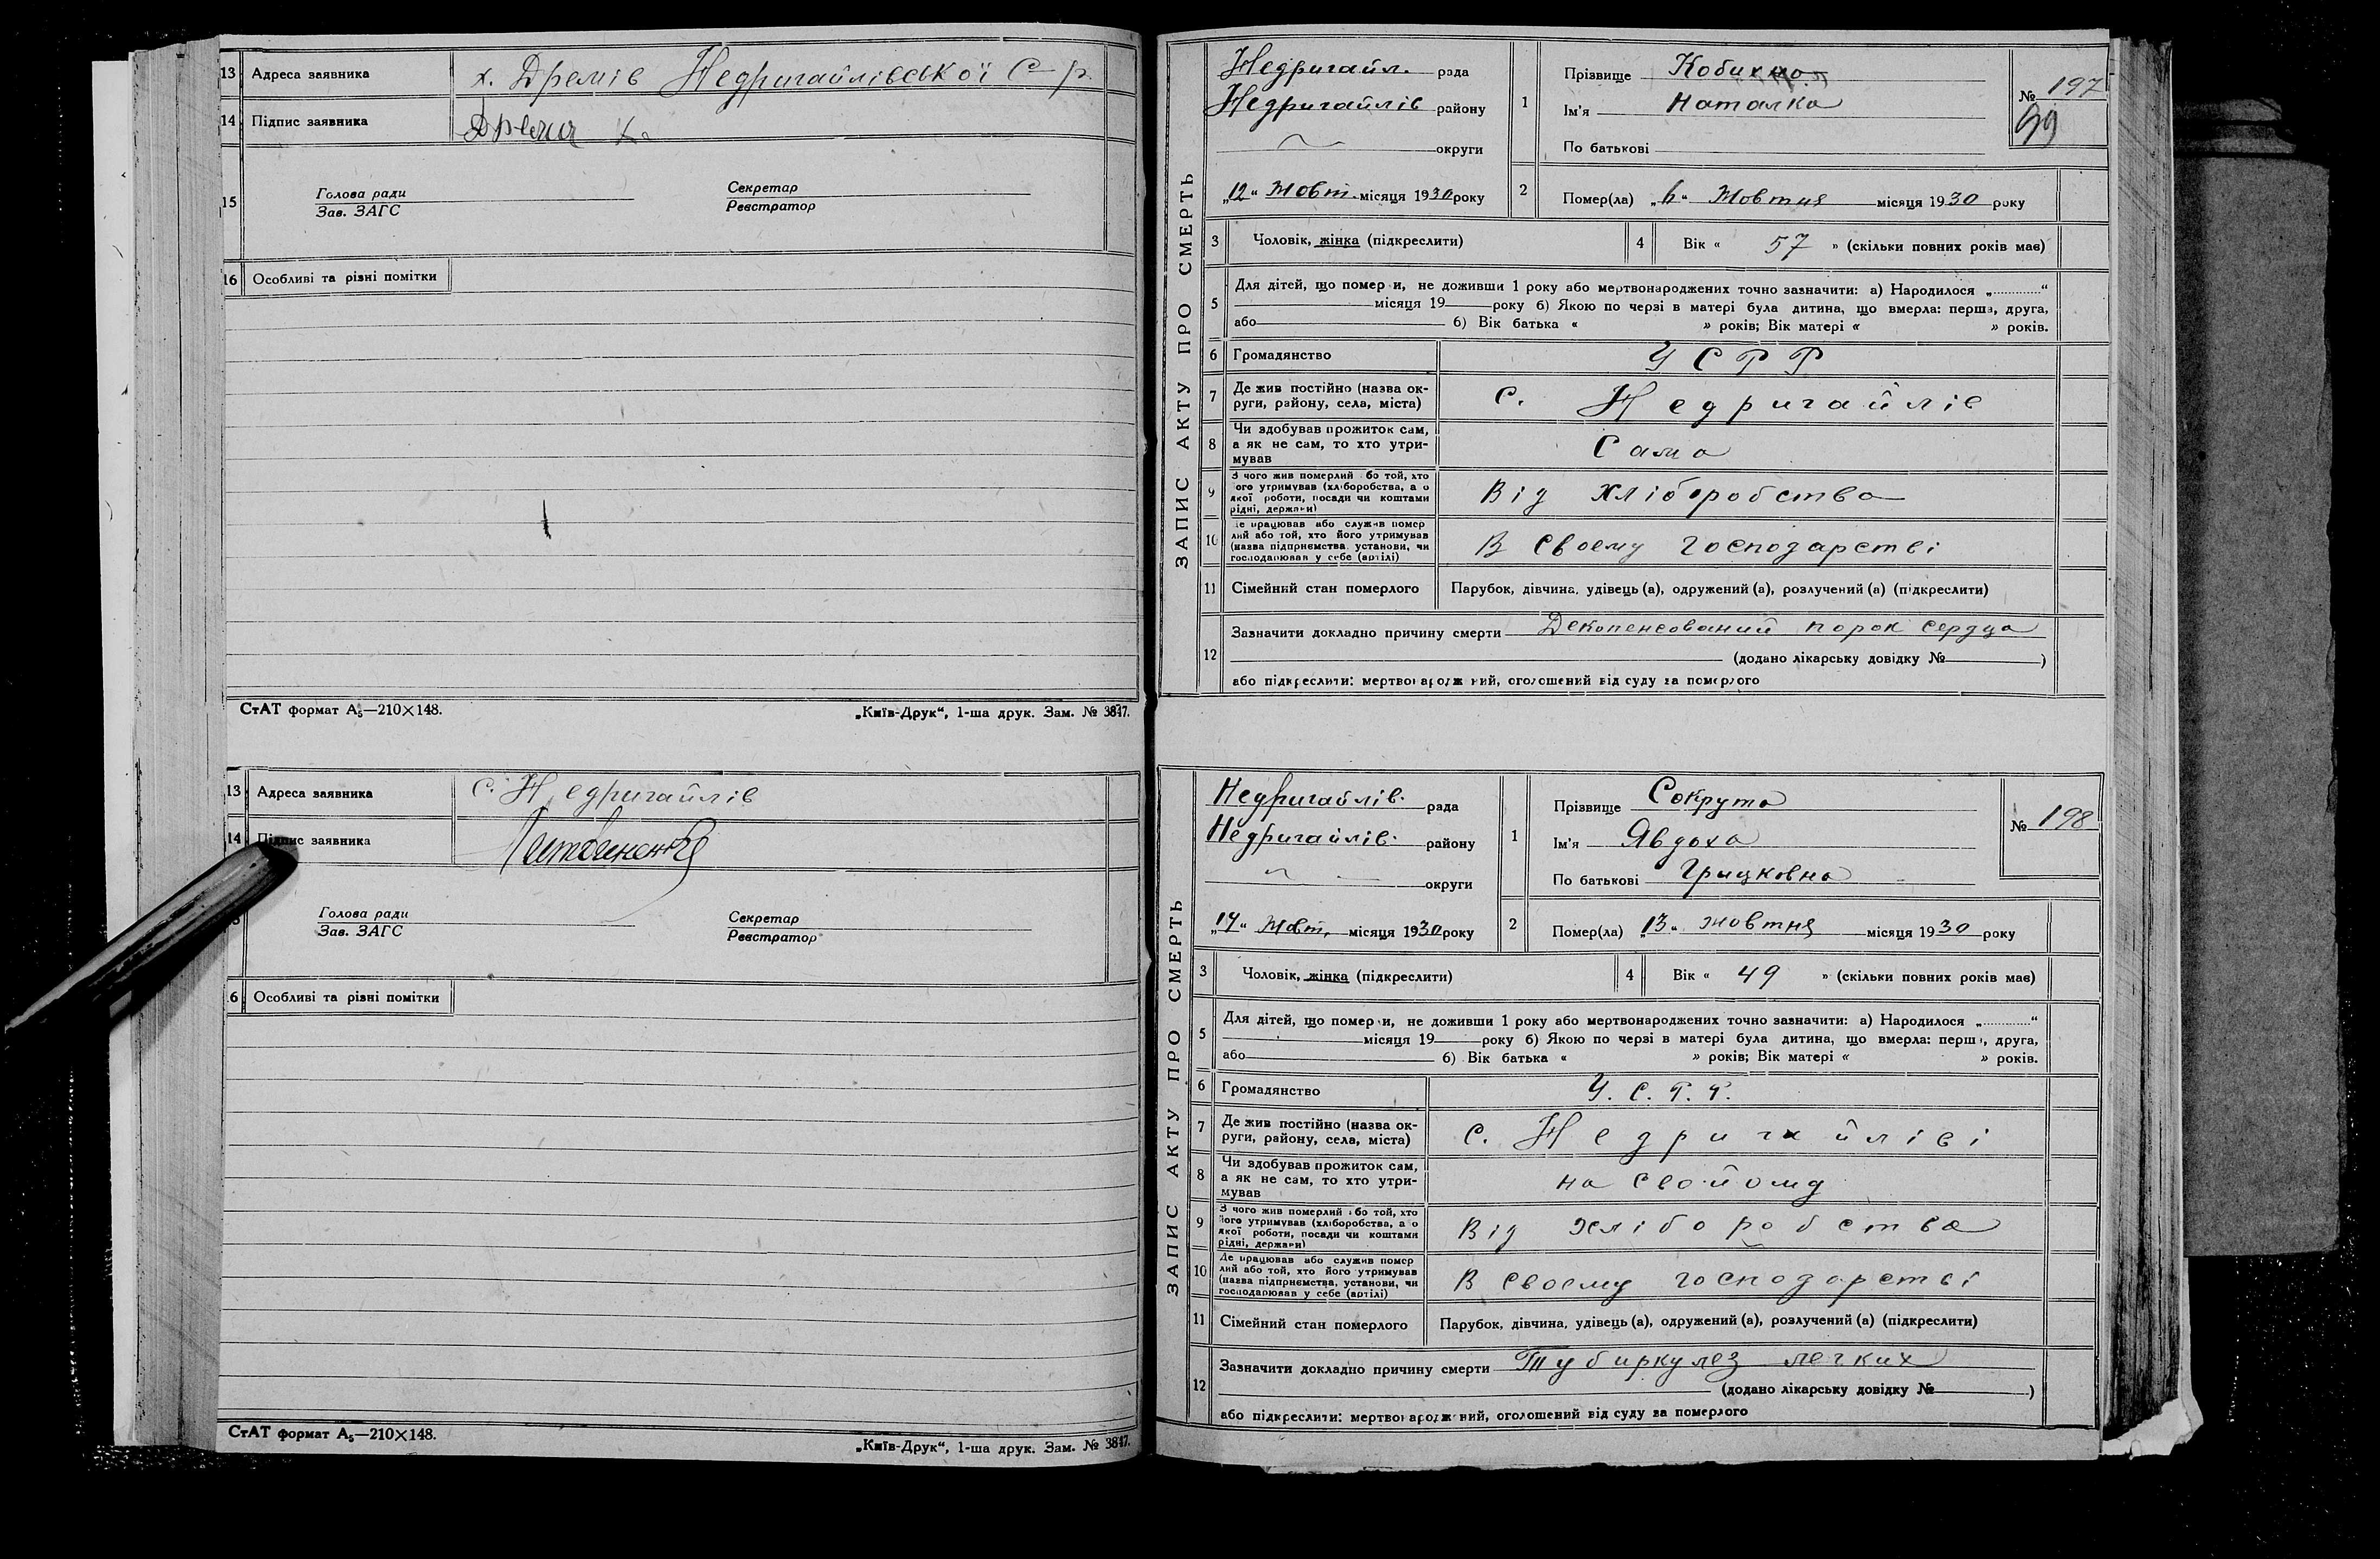 13 Адреса заявника х. Дремів Недригайлівської С р.
14 Підпис заявника
15 Голова ради Секретар
Зав. ЗАГС Реєстратор
16 Особливі та різні помітки
СтАТ формат А₅—210×148. „Київ-Друк“, 1-ша друк. Зам. № 3847.
13 Адреса заявника с. Недригайлів
14 Підпис заявника Литвиненко
Голова ради Секретар
Зав. ЗАГС Реєстратор
6 Особливі та різні помітки
СтАТ формат А₅—210×148. „Київ-Друк“, 1-ша друк. Зам. № 3847.
ЗАПИС АКТУ ПРО СМЕРТЬ
Недригайл. рада
Недригайлів району
округи
„12“ Жовт. місяця 1930 року
1 Прізвище
Ім'я Наталка
По батькові
№ 197
99
2 Помер(ла) Жовтня місяця 1930 року
3 Чоловік, жінка (підкреслити)
4 Вік « 57 » (скільки повних років має)
5 Для дітей, що помер и, не доживши 1 року або мертвонароджених точно зазначити: а) Народилося „ “
місяця 19 року б) Якою по черзі в матері була дитина, що вмерла: перша, друга,
або б) Вік батька « » років; Вік матері « » років.
6 Громадянство УСРР
7 Де жив постійно (назва ок-
руги, району, села, міста) с. Недригайлів
8 Чи здобував прожиток сам,
а як не сам, то хто утри-
мував Сама
9 З чого жив померлий бо той, хто
ого утримував (хліборобства, а о
якої роботи, посади чи коштами
рідні, держави) Від хліборобства
10 е працював або служив помер
лий або той, хто його утримував
(назва підприємства, установи, чи
господарював у себе (артілі) В своему господарстві
11 Сімейний стан померлого Парубок, дівчина, удівець (а), одружений (а), розлучений (а) (підкреслити)
12 Зазначити докладно причину смерти Декопенсований порок сердца
(додано лікарську довідку № )
або підкреслити: мертвонароджений, оголошений від суду за померлого
ЗАПИС АКТУ ПРО СМЕРТЬ
Недригайлів. рада
Недригайлів. району
округи
„14“ Жовт. місяця 1930 року
1 Прізвище Сокрута
Ім'я Явдоха
По батькові Грицковна
№ 198
2 Помер(ла) „13“ жовтня місяця 1930 року
3 Чоловік, жінка (підкреслити)
4 Вік « 49 » (скільки повних років має)
5 Для дітей, що помер и, не доживши 1 року або мертвонароджених точно зазначити: а) Народилося „ “
місяця 19 року б) Якою по черзі в матері була дитина, що вмерла: перш , друга,
або б) Вік батька « » років; Вік матері « » років.
6 Громадянство У.С.Р.Р.
7 Де жив постійно (назва ок-
руги, району, села, міста) с. Недригайліві
8 Чи здобував прожиток сам,
а як не сам, то хто утри-
мував на свойому
9 З чого жив померлий або той, хто
його утримував (хліборобства, а о
якої роботи, посади чи коштами
рідні, держави) Від хліборобства
10 Де працював або служив помер
лий або той, хто його утримував
(назва підприємства, установи, чи
господарював у себе (артілі) В своему господарстві
11 Сімейний стан померлого Парубок, дівчина, удівець (а), одружений (а), розлучений (а) (підкреслити)
12 Зазначити докладно причину смерти Тубиркулез легких
(додано лікарську довідку № )
або підкреслити: мертвонароджений, оголошений від суду за померлого